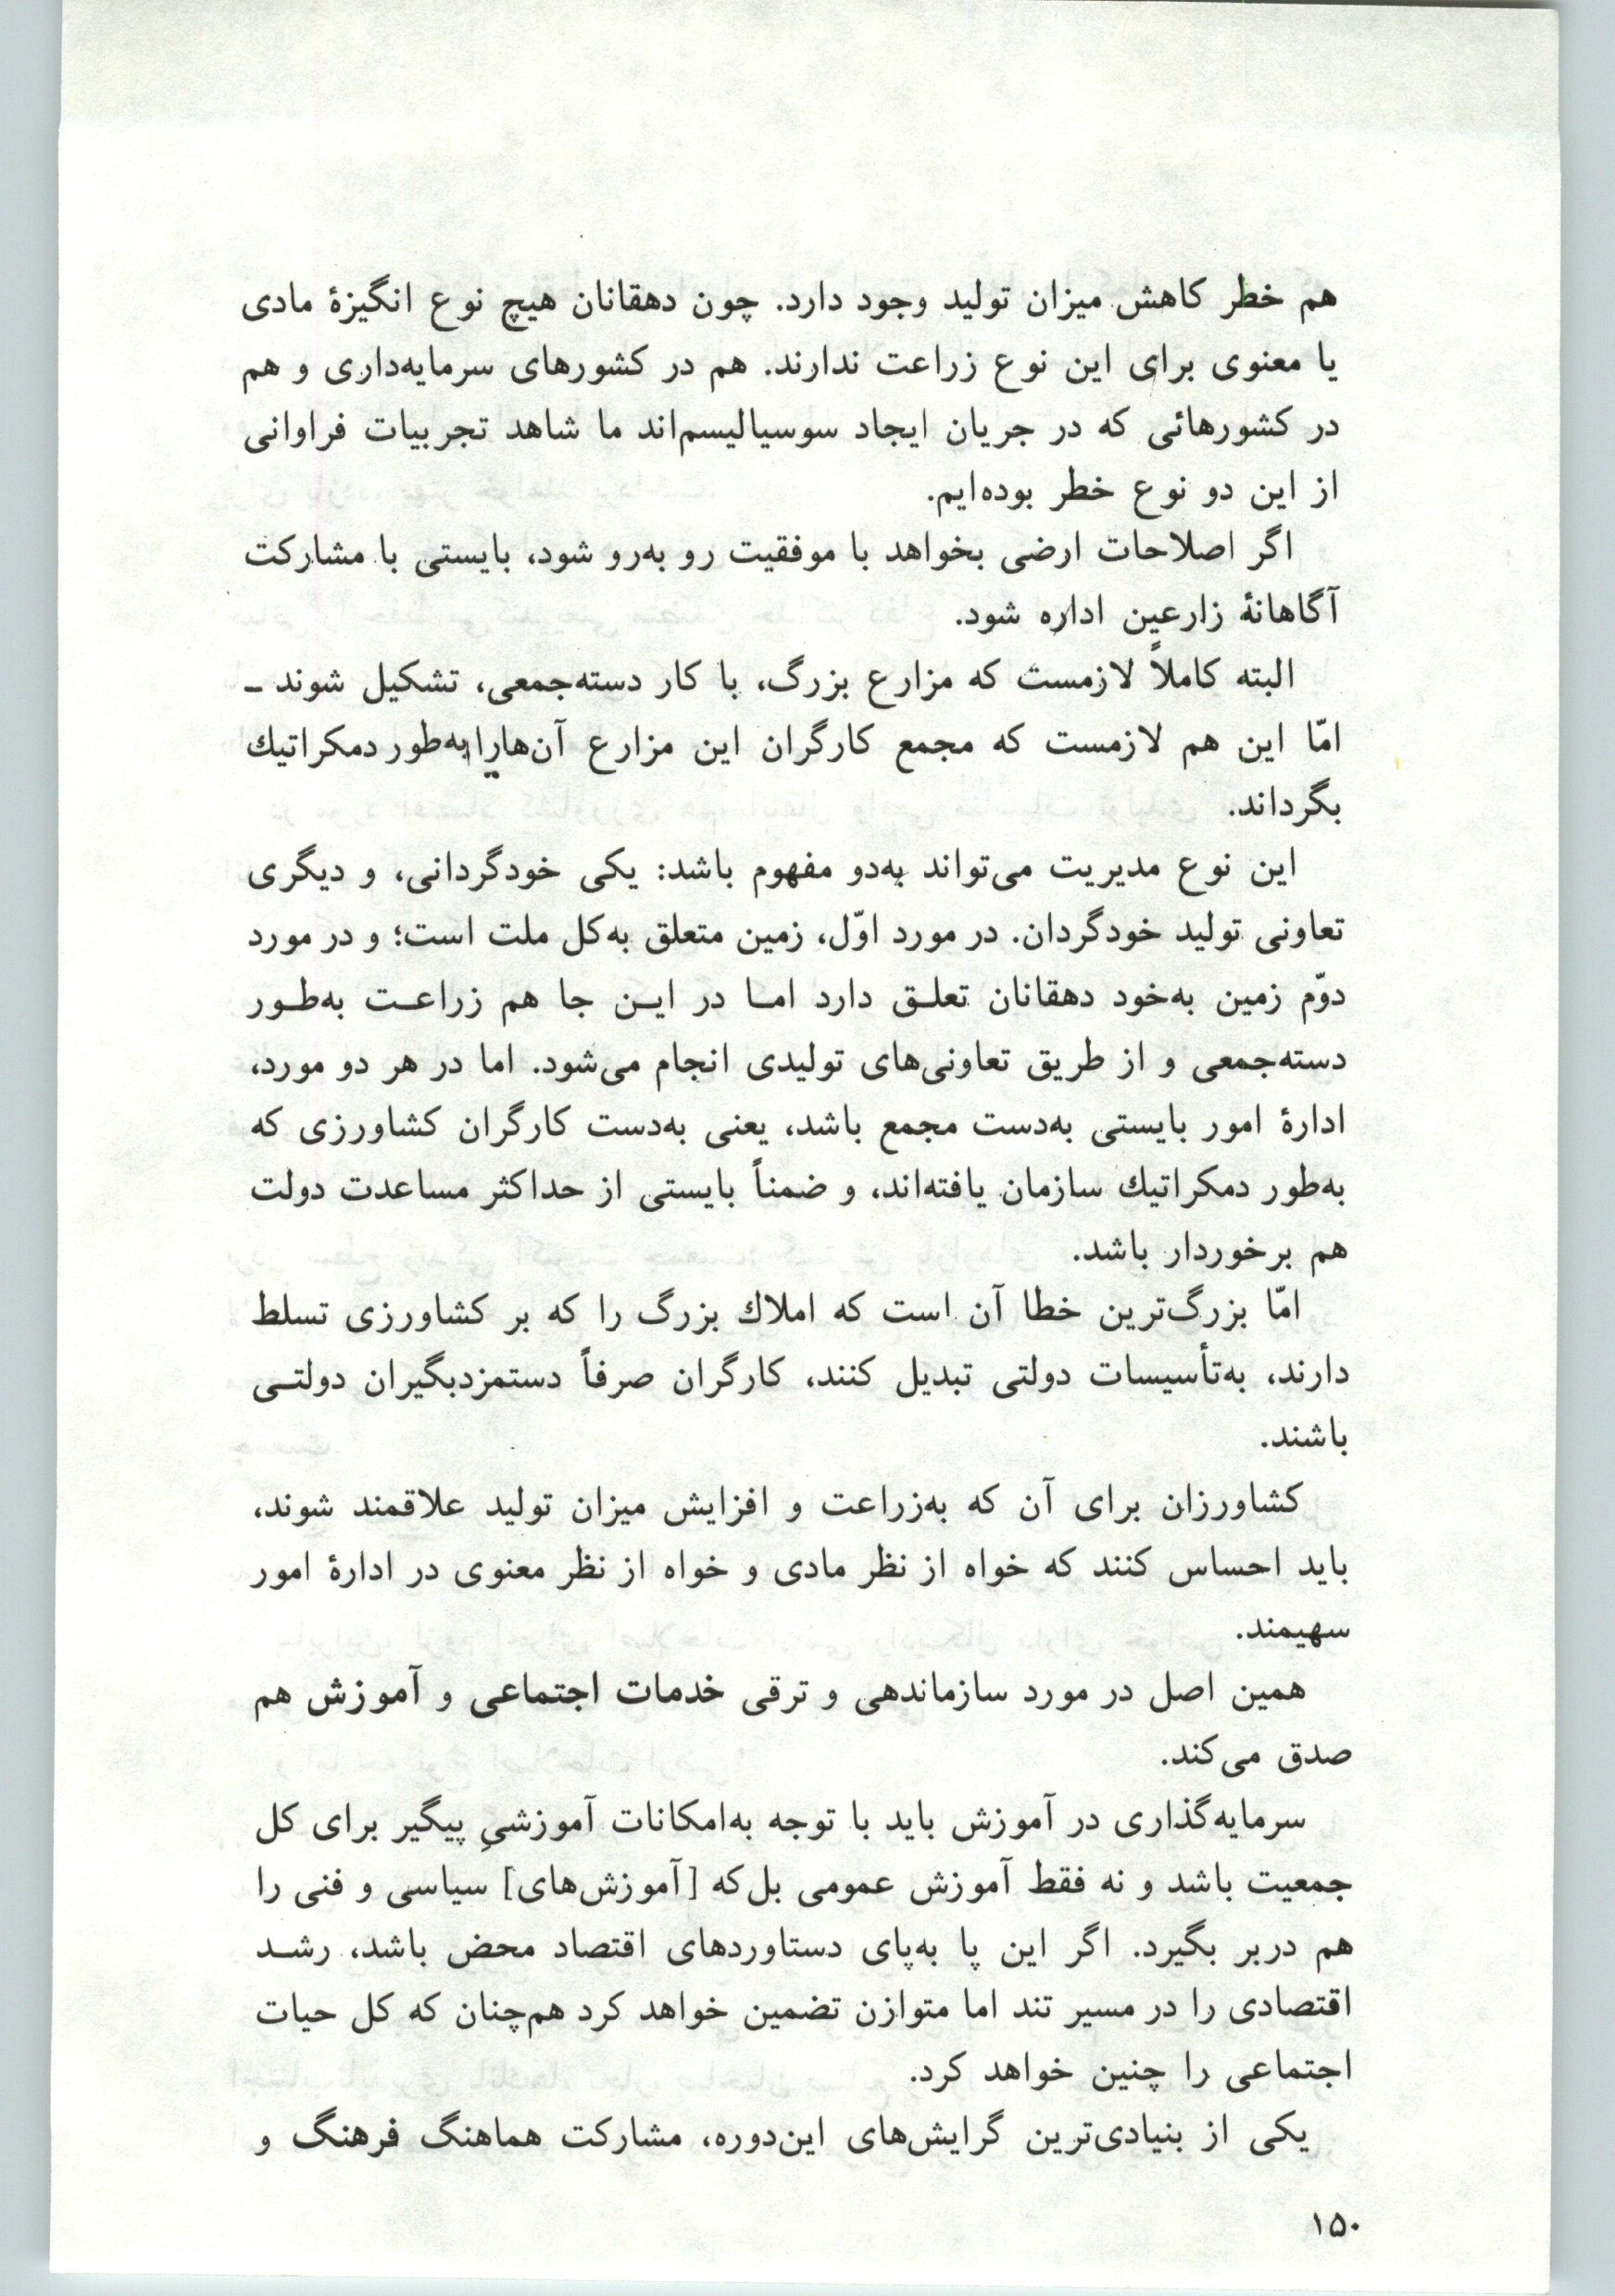 هم خطر کاهش میزان تولید وجود دارد. چون دهقانان هیچ نوع انگیزهٔ مادی
یا معنوی برای این نوع زراعت ندارند. هم در کشورهای سرمایه‌داری و هم
در کشورهائی که در جریان ایجاد سوسیالیسم‌اند ما شاهد تجربیات فراوانی
از این دو نوع خطر بوده‌ایم.
اگر اصلاحات ارضی بخواهد با موفقیت رو به‌رو شود، بایستی با مشارکت
آگاهانهٔ زارعین اداره شود.
البته کاملاً لازمست که مزارع بزرگ، با کار دسته‌جمعی، تشکیل شوند ـ
امّا این هم لازمست که مجمع کارگران این مزارع آن‌هارا به‌طور دمکراتیك
بگرداند.
این نوع مدیریت می‌تواند به‌دو مفهوم باشد: یکی خودگردانی، و دیگری
تعاونی تولید خودگردان. در مورد اوّل، زمین متعلق به‌کل ملت است؛ و در مورد
دوّم زمین به‌خود دهقانان تعلـق دارد امـا در ایـن جا هم زراعـت به‌طـور
دسته‌جمعی و از طریق تعاونی‌های تولیدی انجام می‌شود. اما در هر دو مورد،
ادارهٔ امور بایستی به‌دست مجمع باشد، یعنی به‌دست کارگران کشاورزی که
به‌طور دمکراتیك سازمان یافته‌اند، و ضمناً بایستی از حداکثر مساعدت دولت
هم برخوردار باشد.
امّا بزرگ‌ترین خطا آن است که املاك بزرگ را که بر کشاورزی تسلط
دارند، به‌تأسیسات دولتی تبدیل کنند، کارگران صرفاً دستمزدبگیران دولتـی
باشند.
کشاورزان برای آن که به‌زراعت و افزایش میزان تولید علاقمند شوند،
باید احساس کنند که خواه از نظر مادی و خواه از نظر معنوی در ادارهٔ امور
سهیمند.
همین اصل در مورد سازماندهی و ترقی خدمات اجتماعی و آموزش هم
صدق می‌کند.
سرمایه‌گذاری در آموزش باید با توجه به‌امکانات آموزشیِ پیگیر برای کل
جمعیت باشد و نه فقط آموزش عمومی بل‌که [آموزش‌های] سیاسی و فنی را
هم دربر بگیرد. اگر این پا به‌پای دستاوردهای اقتصاد محض باشد، رشـد
اقتصادی را در مسیر تند اما متوازن تضمین خواهد کرد هم‌چنان که کل حیات
اجتماعی را چنین خواهد کرد.
یکی از بنیادی‌ترین گرایش‌های این‌دوره، مشارکت هماهنگ فرهنگ و
۱۵۰